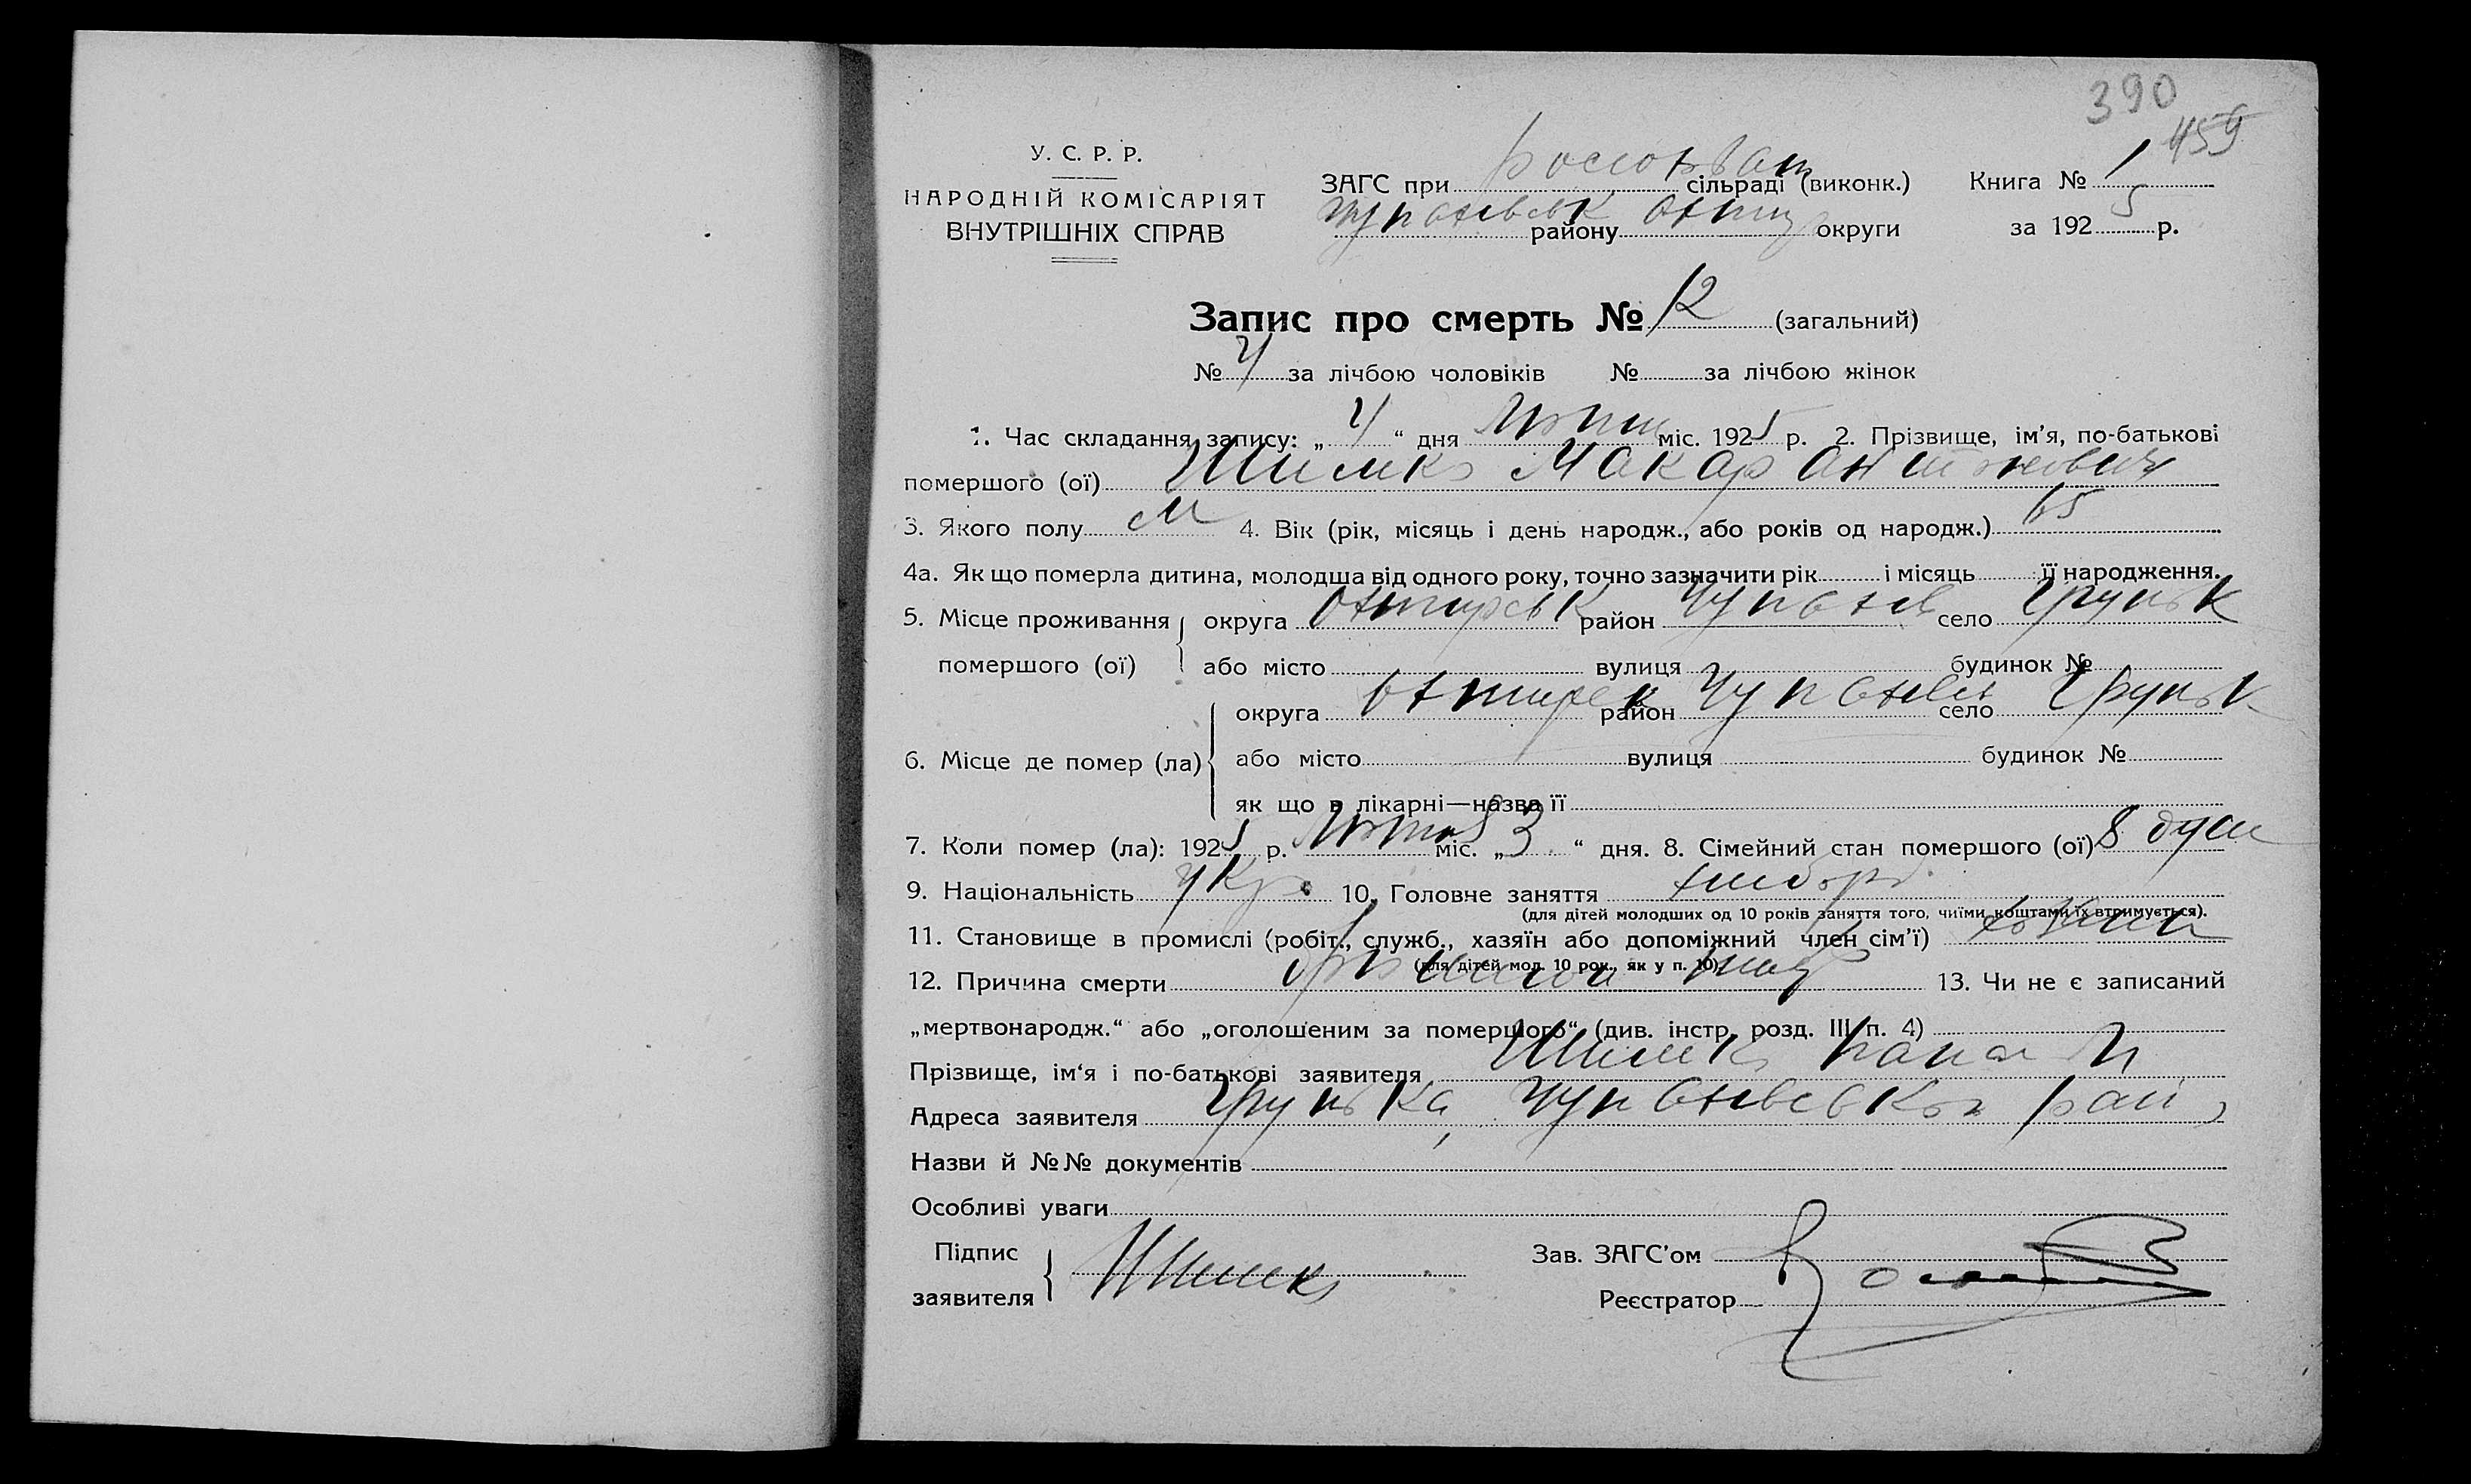 390
459
У. С. Р. Р.
НАРОДНІЙ КОМІСАРІЯТ
ВНУТРІШНІХ СПРАВ
ЗАГС при сільраді (виконк.) Книга № 1
району округи за 1925 р.
Запис про смерть № 12 (загальний)
№ 4 за лічбою чоловіків № за лічбою жінок
1. Час складання запису: „ 4 “ дня міс. 1925 р. 2. Прізвище, ім’я, по-батькові
помершого (ої) Шимко Макар Антонович
3. Якого полу М 4. Вік (рік, місяць і день народж., або років од народж.) 65
4а. Як що померла дитина, молодша від одного року, точно зазначити рік і місяць її народження.
5. Місце проживання помершого (ої) округа Охтирськ район Чупахів село Груньк
або місто вулиця будинок №
6. Місце де помер (ла) округа Охтирск район Чупахівс село Груньк
або місто вулиця будинок №
як що в лікарні—назва її
7. Коли помер (ла): 1925 р. міс. „ 3 “ дня. 8. Сімейний стан помершого (ої) 8 душ
9. Національність укр. 10. Головне заняття хлібороб.
(для дітей молодших од 10 років заняття того, чиїми коштами їх втримується).
11. Становище в промислі (робіт., служб., хазяїн або допоміжний член сім’ї)
(для дітей мол. 10 рок., як у п. 10)
12. Причина смерти тиф 13. Чи не є записаний
„мертвонародж.“ або „оголошеним за помершого“ (див. інстр. розд. III п. 4)
Прізвище, ім‘я і по-батькові заявителя Шимко
Адреса заявителя Грунька, Чупахівсько рай
Назви й №№ документів
Особливі уваги
Підпис заявителя Шимко Зав. ЗАГС’ом
Реєстратор